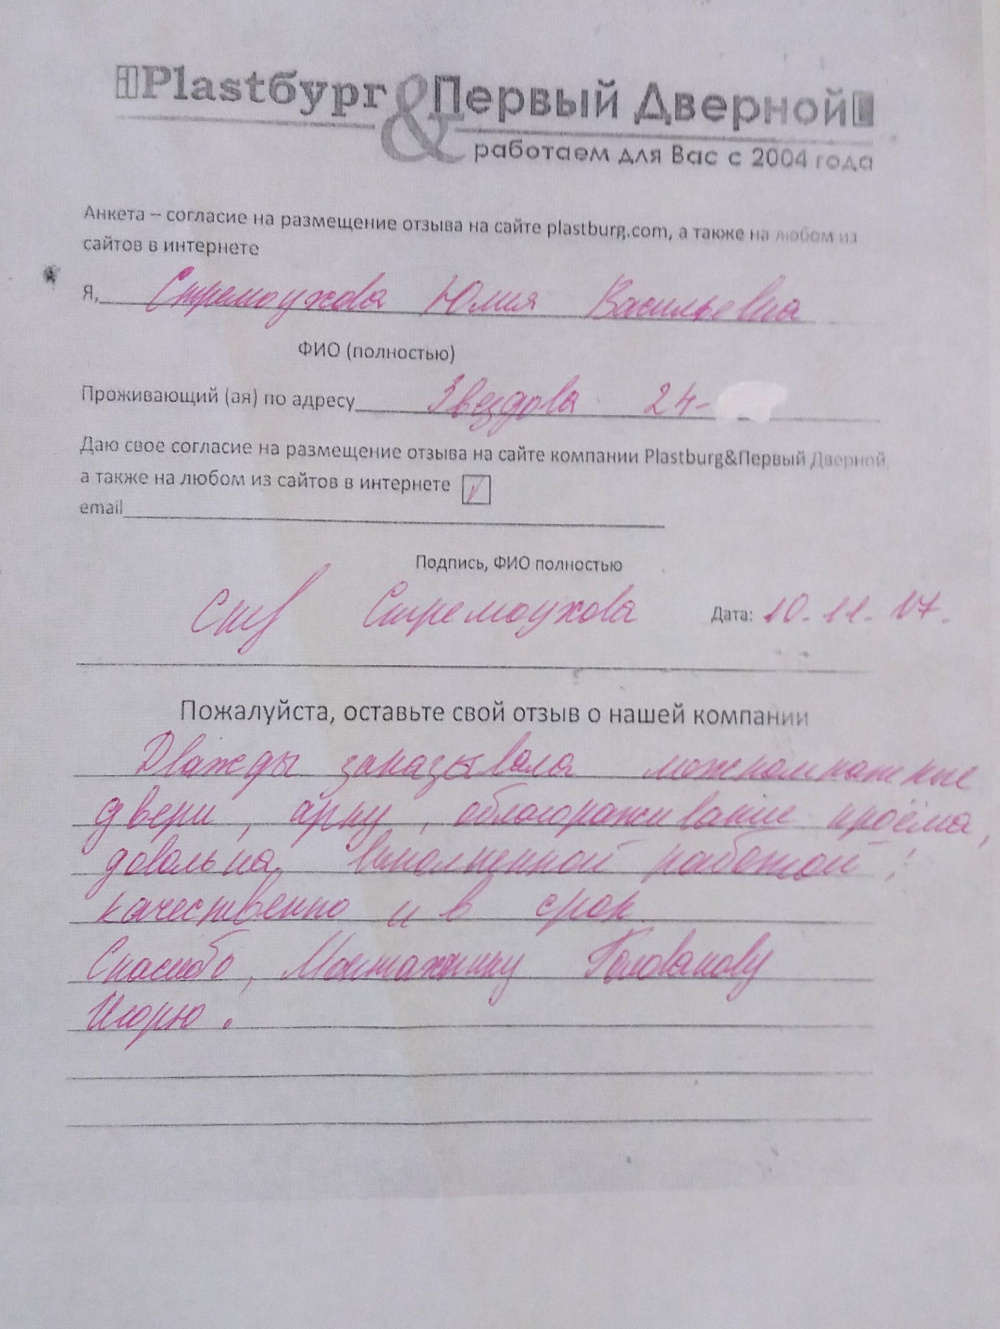 Plastбург & Первый Дверной
работаем для Вас с 2004 года
Анкета – согласие на размещение отзыва на сайте plastburg.com, а также на любом из
сайтов в интернете
Я, Стремоухова Юлия Васильевна
ФИО (полностью)
Проживающий (ая) по адресу Звездова 24-
Даю свое согласие на размещение отзыва на сайте компании Plastburg&Первый Дверной,
а также на любом из сайтов в интернете
email
Подпись, ФИО полностью
Стремоухова Дата: 10.11.17.
Пожалуйста, оставьте свой отзыв о нашей компании
Дважды заказывала межкомнатные
двери, арку, облагораживание проёма,
довольна выполненной работой:
качественно и в срок.
Спасибо, Монтажнику Голованову
Игорю.